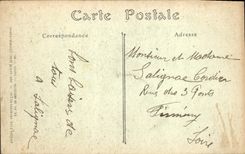 Carte Postale
Correspondance
Adresse
Bons baisers de
tous
A Salignac
Monsieur et Madame
Salignac Cordier
Rue des 3 Ponts
Firminy
Loire